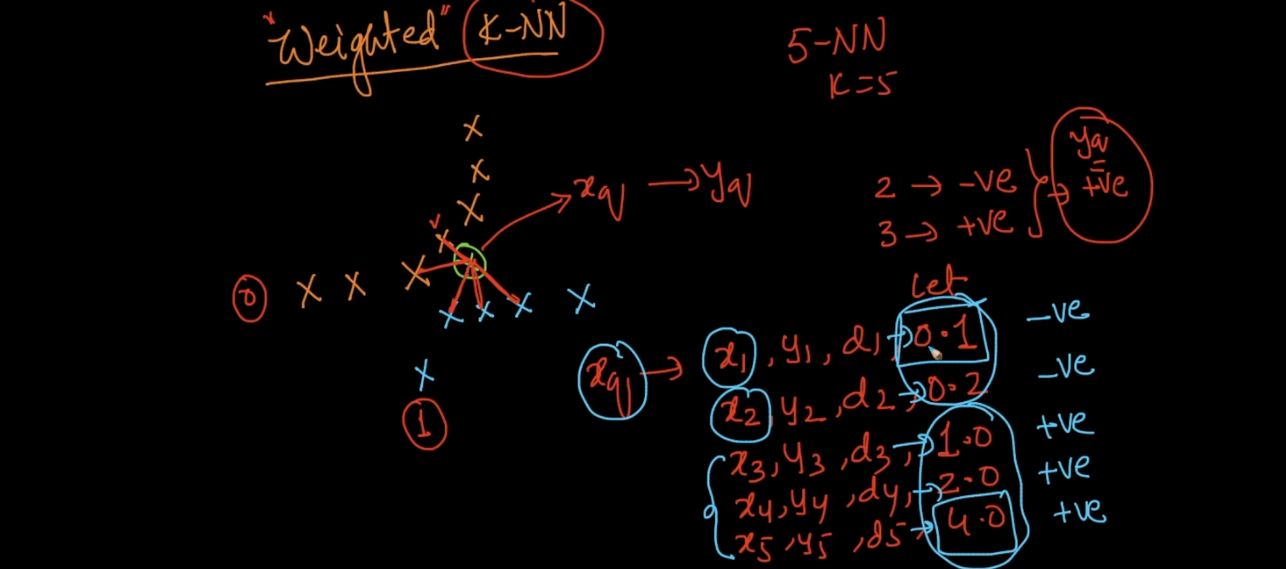 "Weighted" K-NN
5-NN
K=5
xq → yq
2 → -ve
3 → +ve
yq = +ve
0
1
Let
xq → x1, y1, d1, → 0.1 -ve
x2, y2, d2, → 0.2 -ve
x3, y3, d3, → 1.0 +ve
x4, y4, d4, → 2.0 +ve
x5, y5, d5 → 4.0 +ve